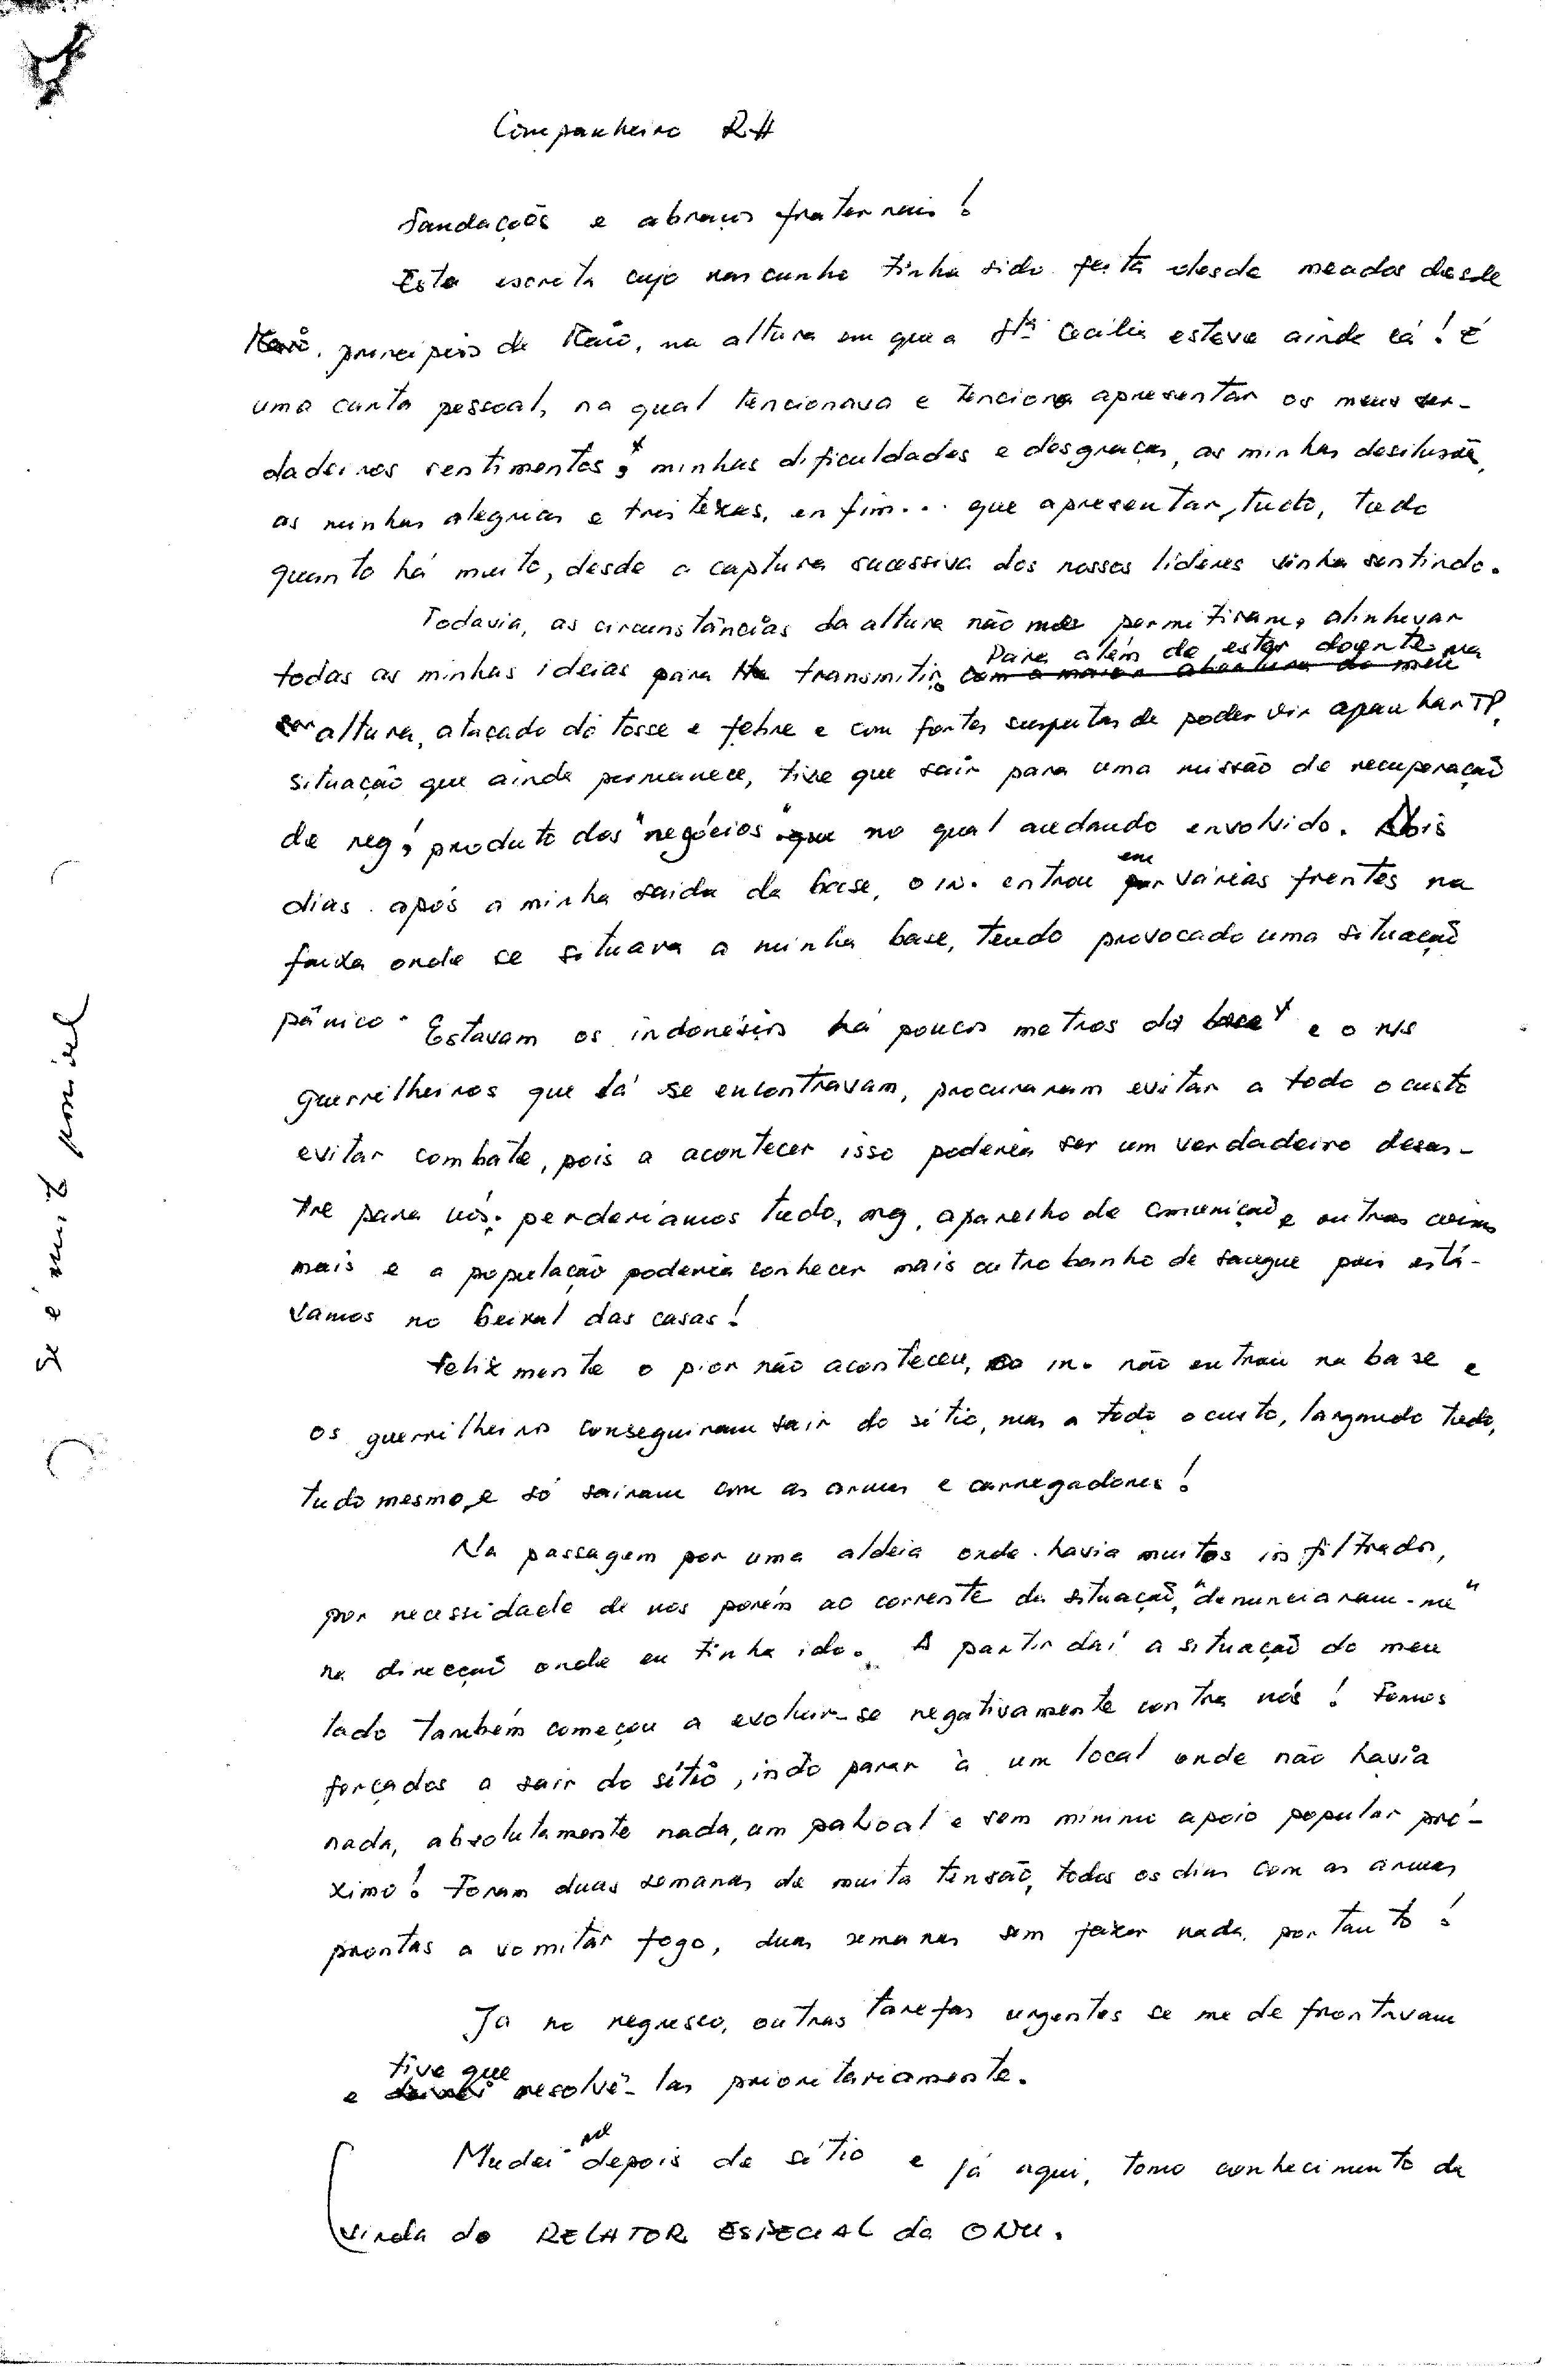 Companheiro RH
Saudações e abraços fraternais!
Esta escrita cujo rascunho tinha sido feita desde meados desde
Maio, principios de Maio, na altura em que a Stª Cecilia esteve ainde cá! É
uma carta pessoal, na qual tencionava e tenciona apresentar os meus ver-
dadeiros sentimentos, minhas dificuldades e desgraças, as minhas desilusões,
as minhas alegrias e tristezas, enfim... que apresentar, tudo, tudo
quanto há muito, desde a captura sucessiva dos nossos líderes vinha sentindo.
Todavia, as circunstâncias da altura não me permitiram, alinhavar
todas as minhas ideias para transmitir. Para além de estar doente na
altura, atacado de tosse e febre e com fortes suspeitas de poder vir apanhar TP,
situação que ainda permanece, tive que sair para uma missão de recuperação
de reg, produto dos "negócios" no qual ando envolvido. Dois
dias após a minha saida da base, o in. entrou em várias frentes na
faixa onde se situava a minha base, tendo provocado uma situação
pânico. Estavam os indonésios há poucos metros da base e o n/s
guerrilheiros que lá se encontravam, procuraram evitar a todo o custo
evitar combate, pois a acontecer isso poderia ser um verdadeiro desas-
tre para nós: perderiamos tudo, mg, aparelho de comunição e outras coisas
mais e a população poderia conhecer mais outro banho de sangue pois está-
vamos no beiral das casas!
Felizmente o pior não aconteceu, o in. não entrou na base e
os guerrilheiros conseguiram sair do sítio, mas a todo o custo, largando tudo,
tudo mesmo, e só sairam com as armas e carregadores!
Na passagem por uma aldeia onde havia muitos infiltrados,
por necessidade de nos porém ao corrente da situação, "denunciaram-me"
na direcção onde eu tinha ido. A partir daí a situação do meu
lado também começou a evoluir-se negativamente contra nós! Fomos
forçados a sair do sítio, indo parar à um local onde não havia
nada, absolutamente nada, um palhoal e sem minimo apoio popular pró-
ximo! Foram duas semanas de muita tensão, todos os dias com as armas
prontas a vomitar fogo, duas semanas sem fazer nada, portanto!
Já no regresso, outras tarefas urgentes se me defrontavam
e tive que resolvê-las prioritariamente.
Mudei-me depois de sítio e já aqui, tomo conhecimento da
vinda do RELATOR ESPECIAL da ONU.